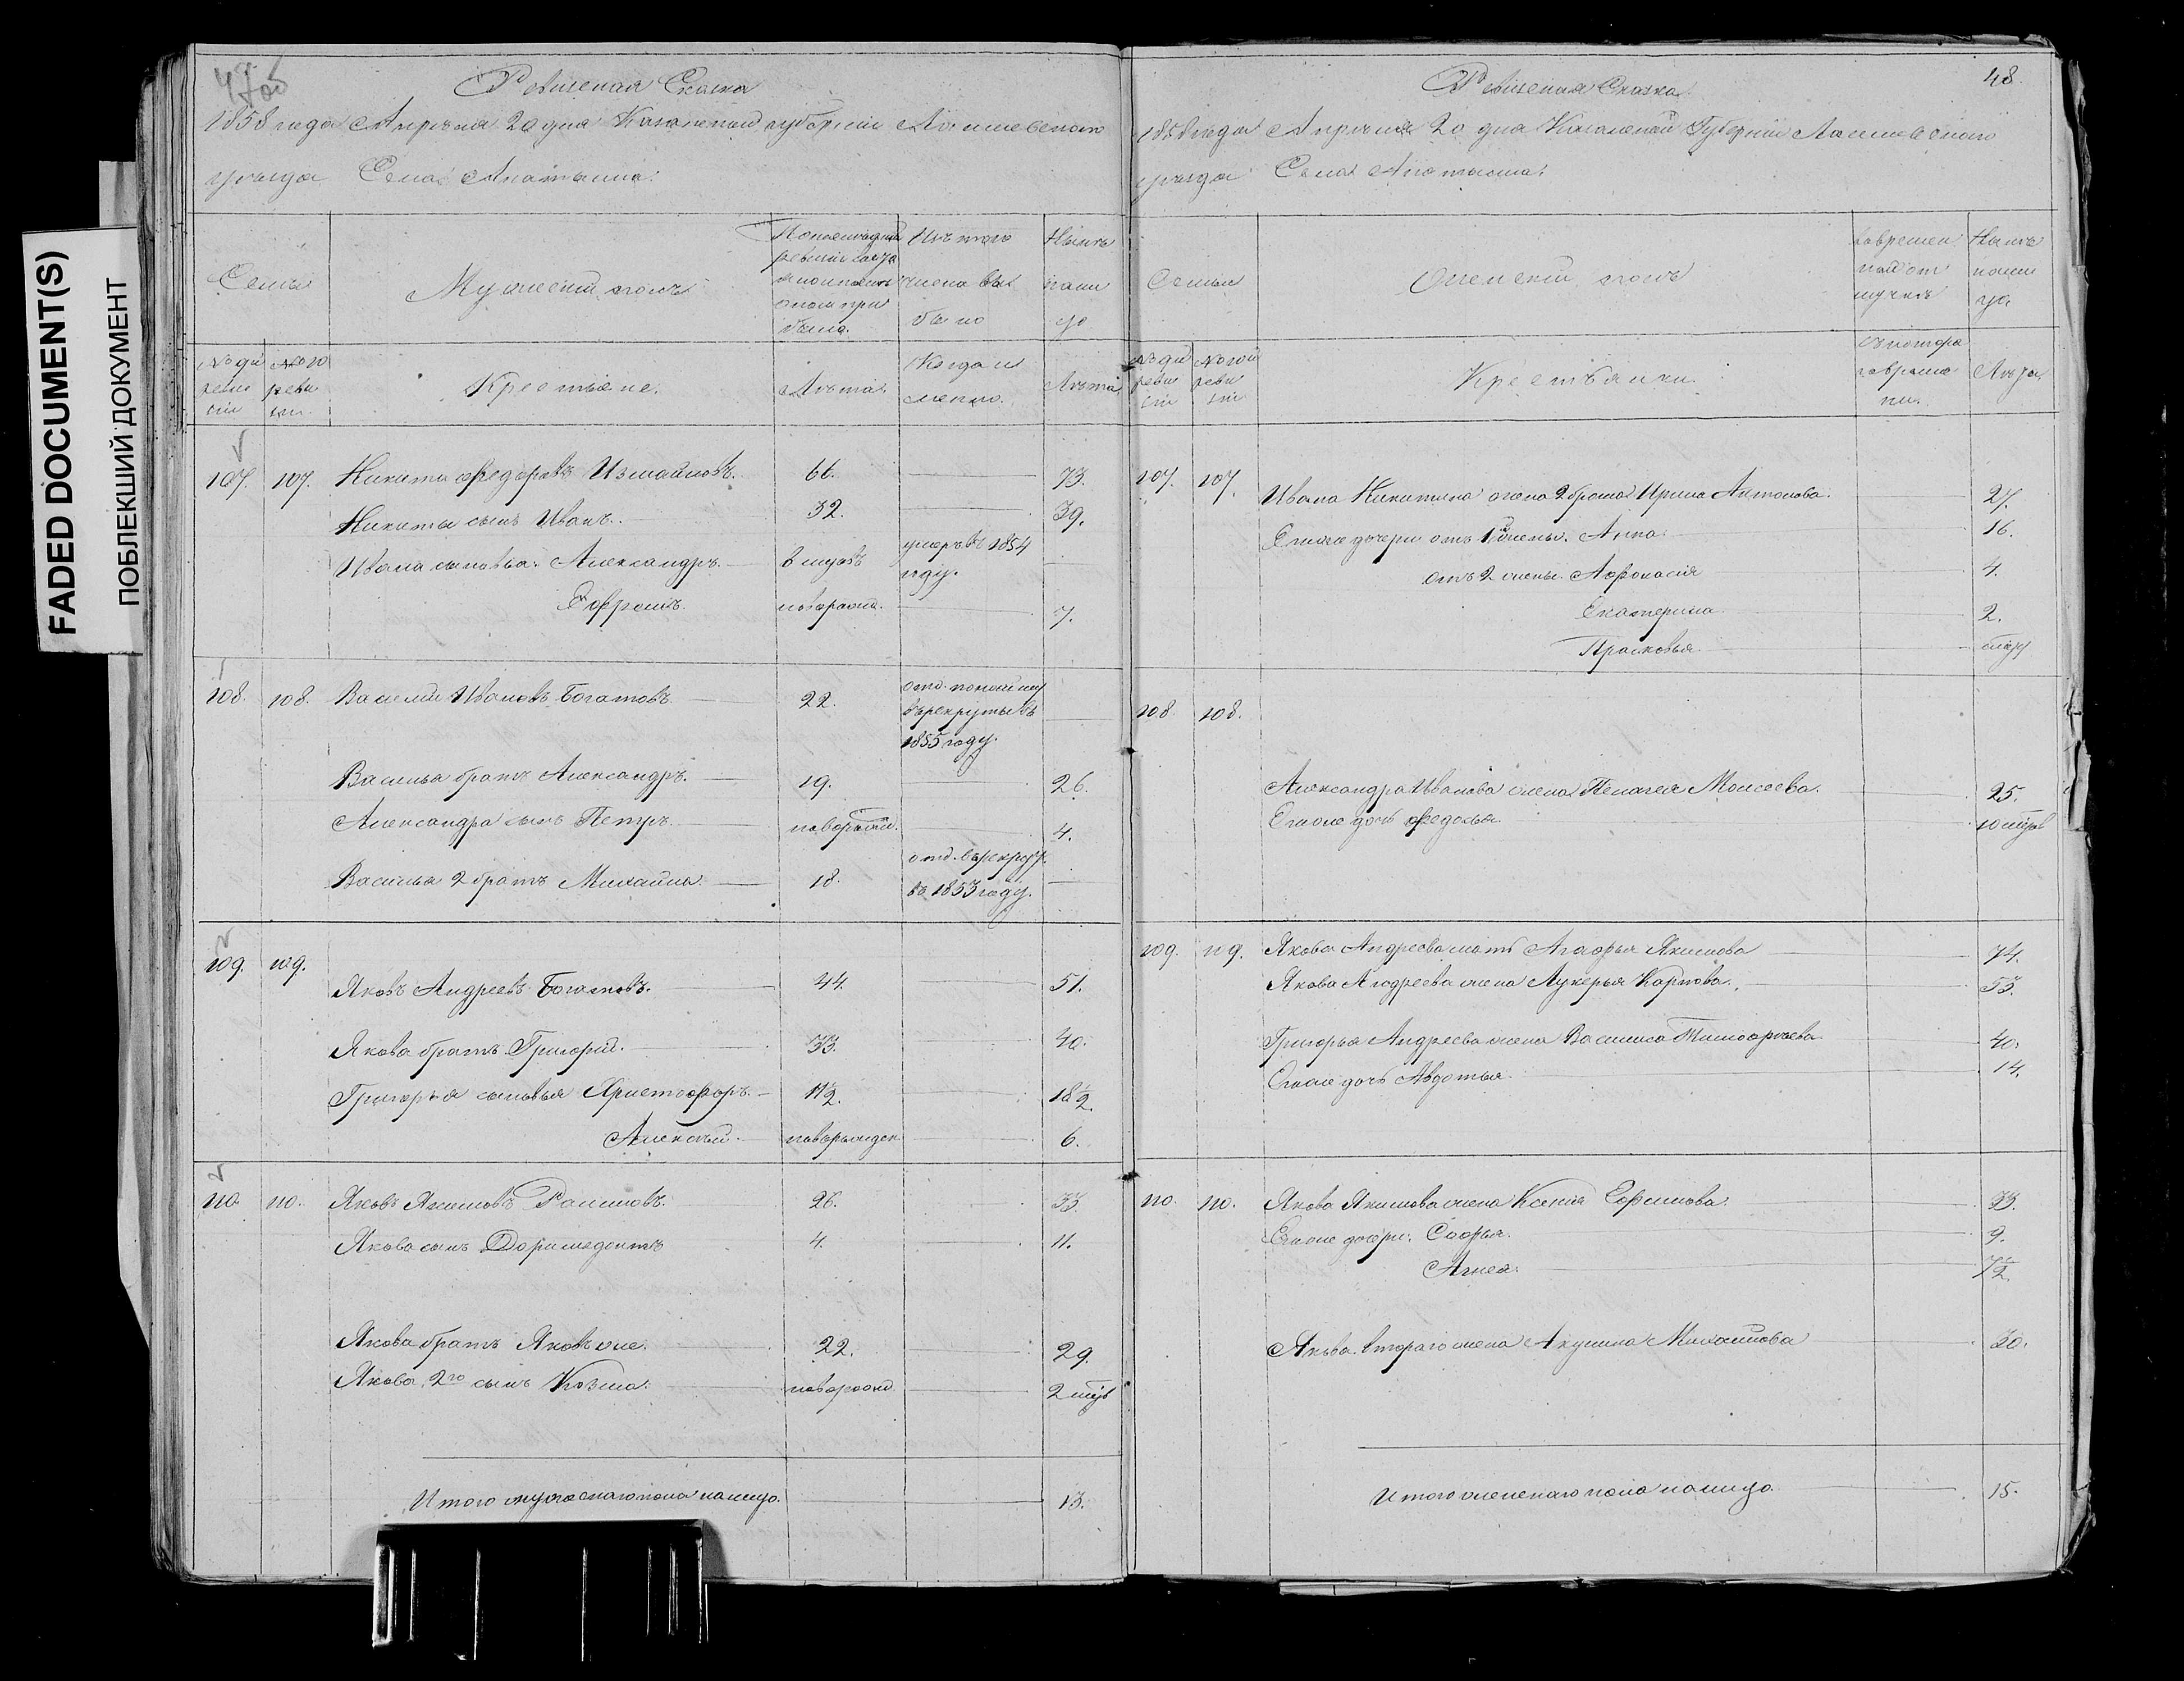 FADED DOCUMENT(S)
ПОБЛЕКШИЙ ДОКУМЕНТ
47об
Ревизская Сказка
1858 года Апрѣля 20 дня Казанской губернiи Лаишевскаго
уѣзда Села
Семьи
Мужеской полъ
Изъ того числа выбыло
Нынѣ на лицо
Крестьяне.
Лѣта.
Когда именно.
Лѣта
107. 107. Никита Федоровъ Измайловъ. 66. 73.
Никиты сынъ Иванъ. 32. 39.
Ивана сыновья: Александръ. умеръ въ 1854 году.
Ефремъ. новорожд. 7.
108. 108. Василий Ивановъ Богатовъ 22. отд. в рекруты въ 1855 году.
Василья братъ Александръ. 19. 26.
Александра сынъ Петръ. новорожд. 4.
Василья 2 братъ Михайла. 18. отд. въ рекрут. въ 1853 году.
109. 109. Яковъ Андреевъ Богатовъ. 44. 51.
Якова братъ Григорий. 33. 40.
Григорья сыновья Христофоръ. 11½. 18½.
Алексѣй новорожден 6.
110. 110. Яковъ Якимовъ 26. 33.
Якова сынъ Доримедонтъ 4. 11.
Якова братъ Яковъ же. 22. 29.
Якова 2го сынъ Козма. новорожд
Итого мужескаго пола на лицо. 13.
48.
Ревизская Сказка
1858 года Апрѣля 20 дня Казанской Губернiи Лаишевскаго
уѣзда Села
Семьи
Женской полъ
Нынѣ на лицо
Крестьянки.
Лѣта.
107. 107. Ивана Никитина жена 2 брака Ирина Антонова. 27.
Егоже дочери отъ 1й жены. Анна 16.
отъ 2 жены. Афонасiя 4.
Екатерина 2.
Прасковья
108 108.
Александра Иванова жена Пелагея Моисеева. 25.
Егоже дочь Федосья
109. 109. Якова Андреева мать Агафья Якимова 74.
Якова Андреева жена Лукерья Карпова. 53.
Григорья Андреева жена Василиса Тимофѣева 40.
Егоже дочь Авдотья 14.
110. 110. Якова Якимова жена Ксенiя Ефимова. 33.
Егоже дочери: Софья. 9.
7½
Якова втораго жена Акулина Михайлова 30.
Итого женскаго пола на лицо 15.